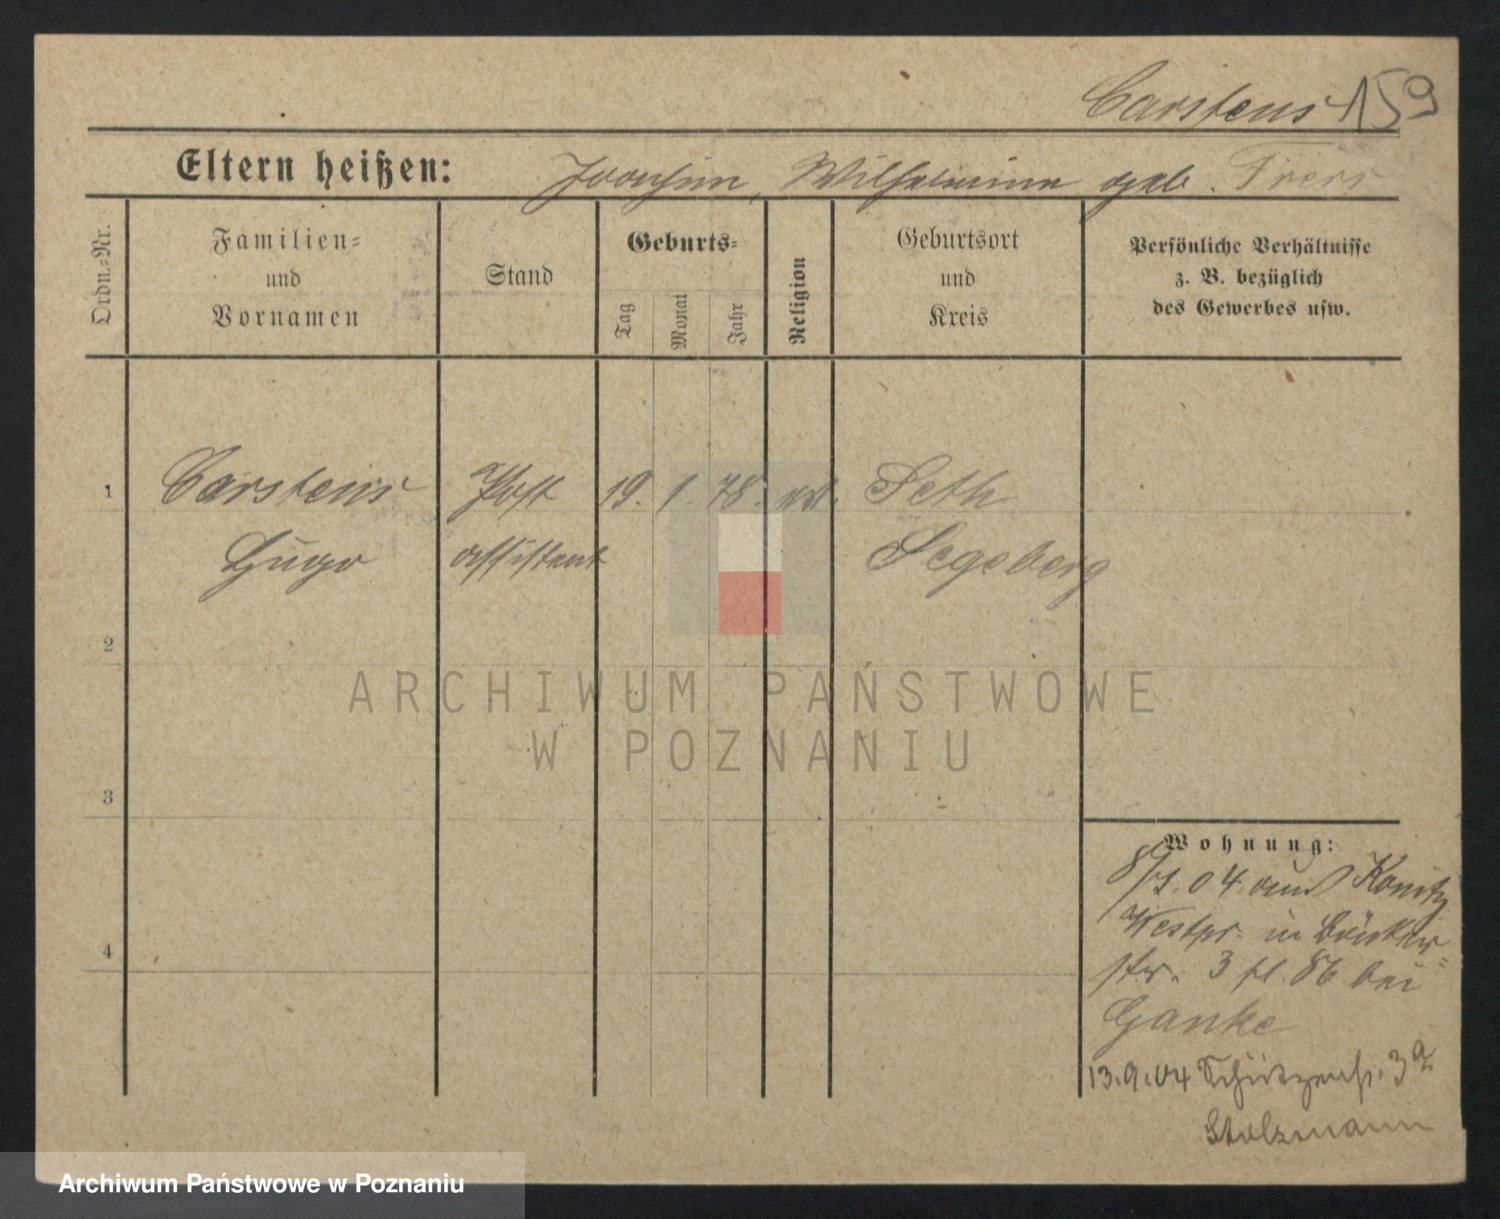 Carstens 159
Eltern heißen: Joachim, Wilhelmine geb. Frers
Ordn.-Nr.
Familien-
und
Vornamen
Stand
Geburts-
Tag
Monat
Jahr
Religion
Geburtsort
und
Kreis
Persönliche Verhältnisse
z. B. bezüglich
des Gewerbes usw.
1 Carstens Post 19. 1. 78. ev. Seth
Hugo assistent Segeberg
2
ARCHIWUM PAŃSTWOWE
W POZNANIU
3
Wohnung:
04. aus Konitz
Westpr. in
str. 3 bei
Ganke
13.9.04 Schützenstr. 3a
Stolzmann
4
Archiwum Państwowe w Poznaniu